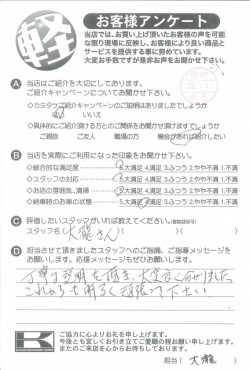 軽
お客様アンケート
当店では、お買い上げ頂いたお客様の声を可能
な限り現場に反映し、お客様により良い商品と
サービスを提供する事に努めています。
大変お手数ですが是非お声をお聞かせ下さい。
A 当店はご紹介を大切にしております。
ご紹介キャンペーンについてお聞かせ下さい。
◇カミタケご紹介キャンペーンのご説明はありましたでしょうか
はい いいえ
◇具体的にご紹介頂ける方とのご関係をお聞かせ頂けますでしょうか
ご親戚 ご友人 職場の方 機会があれば紹介したい
B 当店を実際にご利用になった印象をお聞かせ下さい。
◇総合的な満足度… 5.大満足 4.満足 3.ふつう 2.やや不満 1.不満
◇スタッフの対応… 5.大満足 4.満足 3.ふつう 2.やや不満 1.不満
◇お店の雰囲気、清掃… 5.大満足 4.満足 3.ふつう 2.やや不満 1.不満
◇納車時のお車の状態… 5.大満足 4.満足 3.ふつう 2.やや不満 1.不満
C 評価したいスタッフがいれば教えてください。(複数回答可)
スタッフ名( 大瀧さん )
D 担当させて頂きましたスタッフへのご指摘、ご指導メッセージを
お願いします。応援メッセージもお願いします。
丁寧な説明を頂き、大変良く分りました
これからも明るく頑張って下さい
K
ご協力に心よりお礼を申し上げます。
今後とも宜しくお引き立てご愛顧の程お願い申し上げます。
またのご来店を心からお待ちしております。
担当( 大瀧 )